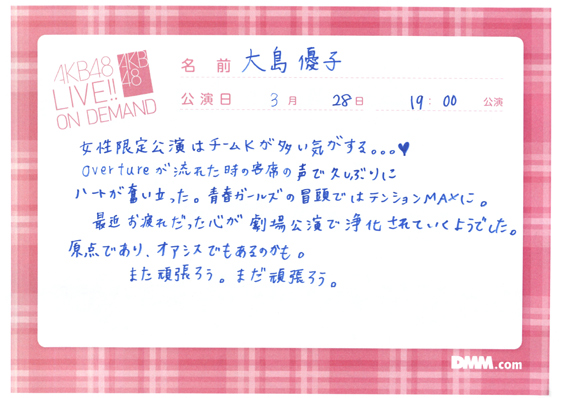 AKB48
LIVE!!
ON DEMAND
AKB
48
名前 大島優子
公演日 3月 28日 19:00 公演
女性限定公演はチームKが多い気がする。。。♥
overtureが流れた時の客席の声で久しぶりに
ハートが奮い立った。青春ガールズの冒頭ではテンションMAXに。
最近お疲れだった心が劇場公演で浄化されていくようでした。
原点であり、オアシスでもあるのかも。
また頑張ろう。まだ頑張ろう。
DMM.com